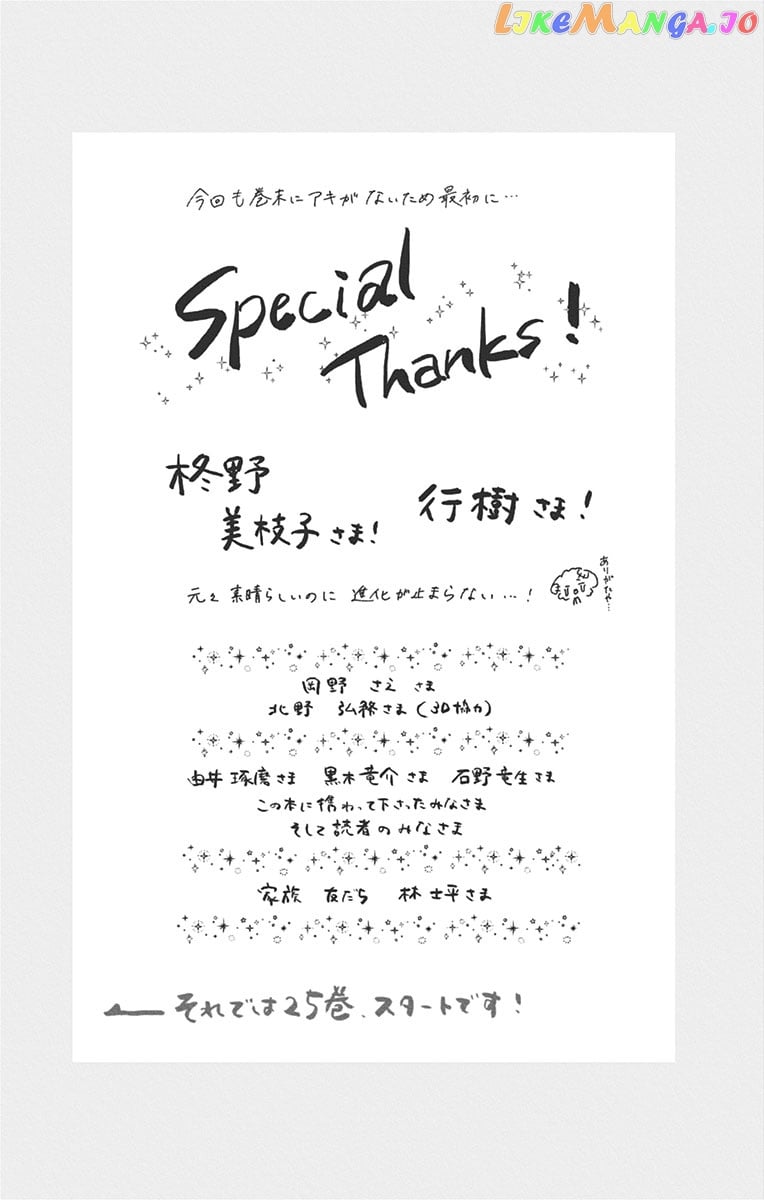 LIKEMANGA.IO
今回も巻末にアキがないため最初に…
Special
Thanks!
柊野
美枝子さま!
行樹さま!
元々素晴らしいのに進化が止まらない…!
ありがたや…
岡野 さえ さま
北野 弘務さま(3D協力)
由井琢磨さま 黒木竜介さま 石野竜生さま
この本に携わって下さったみなさま
そして読者のみなさま
家族 友だち 林士平さま
それでは25巻、スタートです!